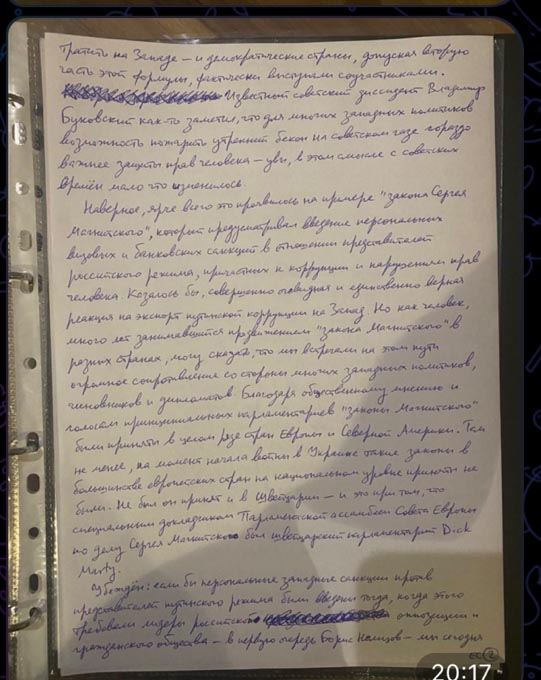 тратить на Западе – и демократические страны, допуская вторую
часть этой формулы, фактически выступали соучастниками.
Известный советский диссидент Владимир
Буковский как-то заметил, что для многих западных политиков
возможность пожарить утренний бекон на советском газе гораздо
важнее защиты прав человека – увы, в этом смысле с советских
времён мало что изменилось.
Наверное, ярче всего это проявилось на примере "закона Сергея
Магнитского", который предусматривал введение персональных
визовых и банковских санкций в отношении представителей
российского режима, причастных к коррупции и нарушениям прав
человека. Казалось бы, совершенно очевидная и единственно верная
реакция на экспорт путинской коррупции на Запад. Но как человек,
много лет занимавшийся продвижением "закона Магнитского" в
разных странах, могу сказать, что мы встречали на этом пути
огромное сопротивление со стороны многих западных политиков,
чиновников и дипломатов. Благодаря общественному мнению и
голосам принципиальных парламентариев "законы Магнитского"
были приняты в целом ряде стран Европы и Северной Америки. Тем
не менее, на момент начала войны в Украине такие законы в
большинстве европейских стран на национальном уровне приняты не
были. Не был он принят и в Швейцарии – и это при том, что
специальным докладчиком Парламентской ассамблеи Совета Европы
по делу Сергея Магнитского был швейцарский парламентарий Dick
Marty.
Убеждён: если бы персональные западные санкции против
представителей путинского режима были введены тогда, когда этого
требовали лидеры российской оппозиции и
гражданского общества – в первую очередь Борис Немцов – мы сегодня
2
20:17